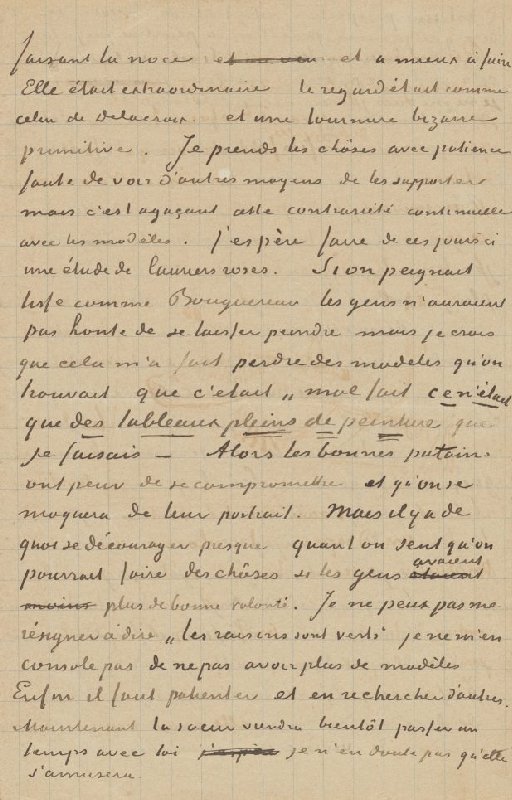 faisant la noce et un peu et a mieux à faire
Elle était extraordinaire le regard était comme
celui de Delacroix. et une tournure bizarre
primitive. Je prends les chôses avec patience
faute de voir d'autres moyens de les supporter
mais c'est agaçant cette contrariété continuelle
avec les modèles. J'espère faire de ces jours ci
une étude de lauriers roses. Si on peignait
lisse comme Bouguereau les gens n'auraient
pas honte de se laisser peindre mais je crois
que cela m'a fait perdre des modeles qu'on
trouvait que c'etait „ mal fait ce n'était
que des tableaux pleins de peinture que
je faisais — Alors les bonnes putains
ont peur de se compromettre et qu'on se
moquera de leur portrait. Mais il y a de
quoi se décourager presque quand on sent qu'on
pourrait faire des chôses si les gens étaient avaient
moins plus de bonne volonté. Je ne peux pas me
résigner à dire „ les raisins sont verts je ne m'en
console pas de ne pas avoir plus de modèles
Enfin il faut patienter et en rechercher d'autres.
Maintenant la soeur viendra bientôt passer un
temps avec toi j'espère je n'en doute pas qu'elle
s'amusera